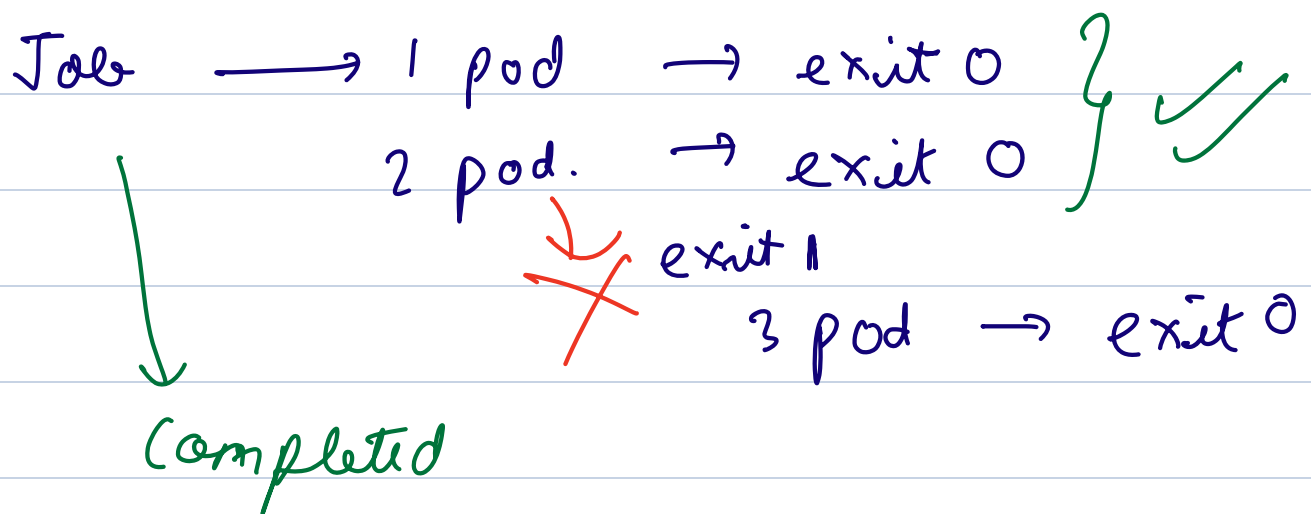 Job → 1 pod → exit 0
2 pod. → exit 0
exit 1
3 pod → exit 0
Completed